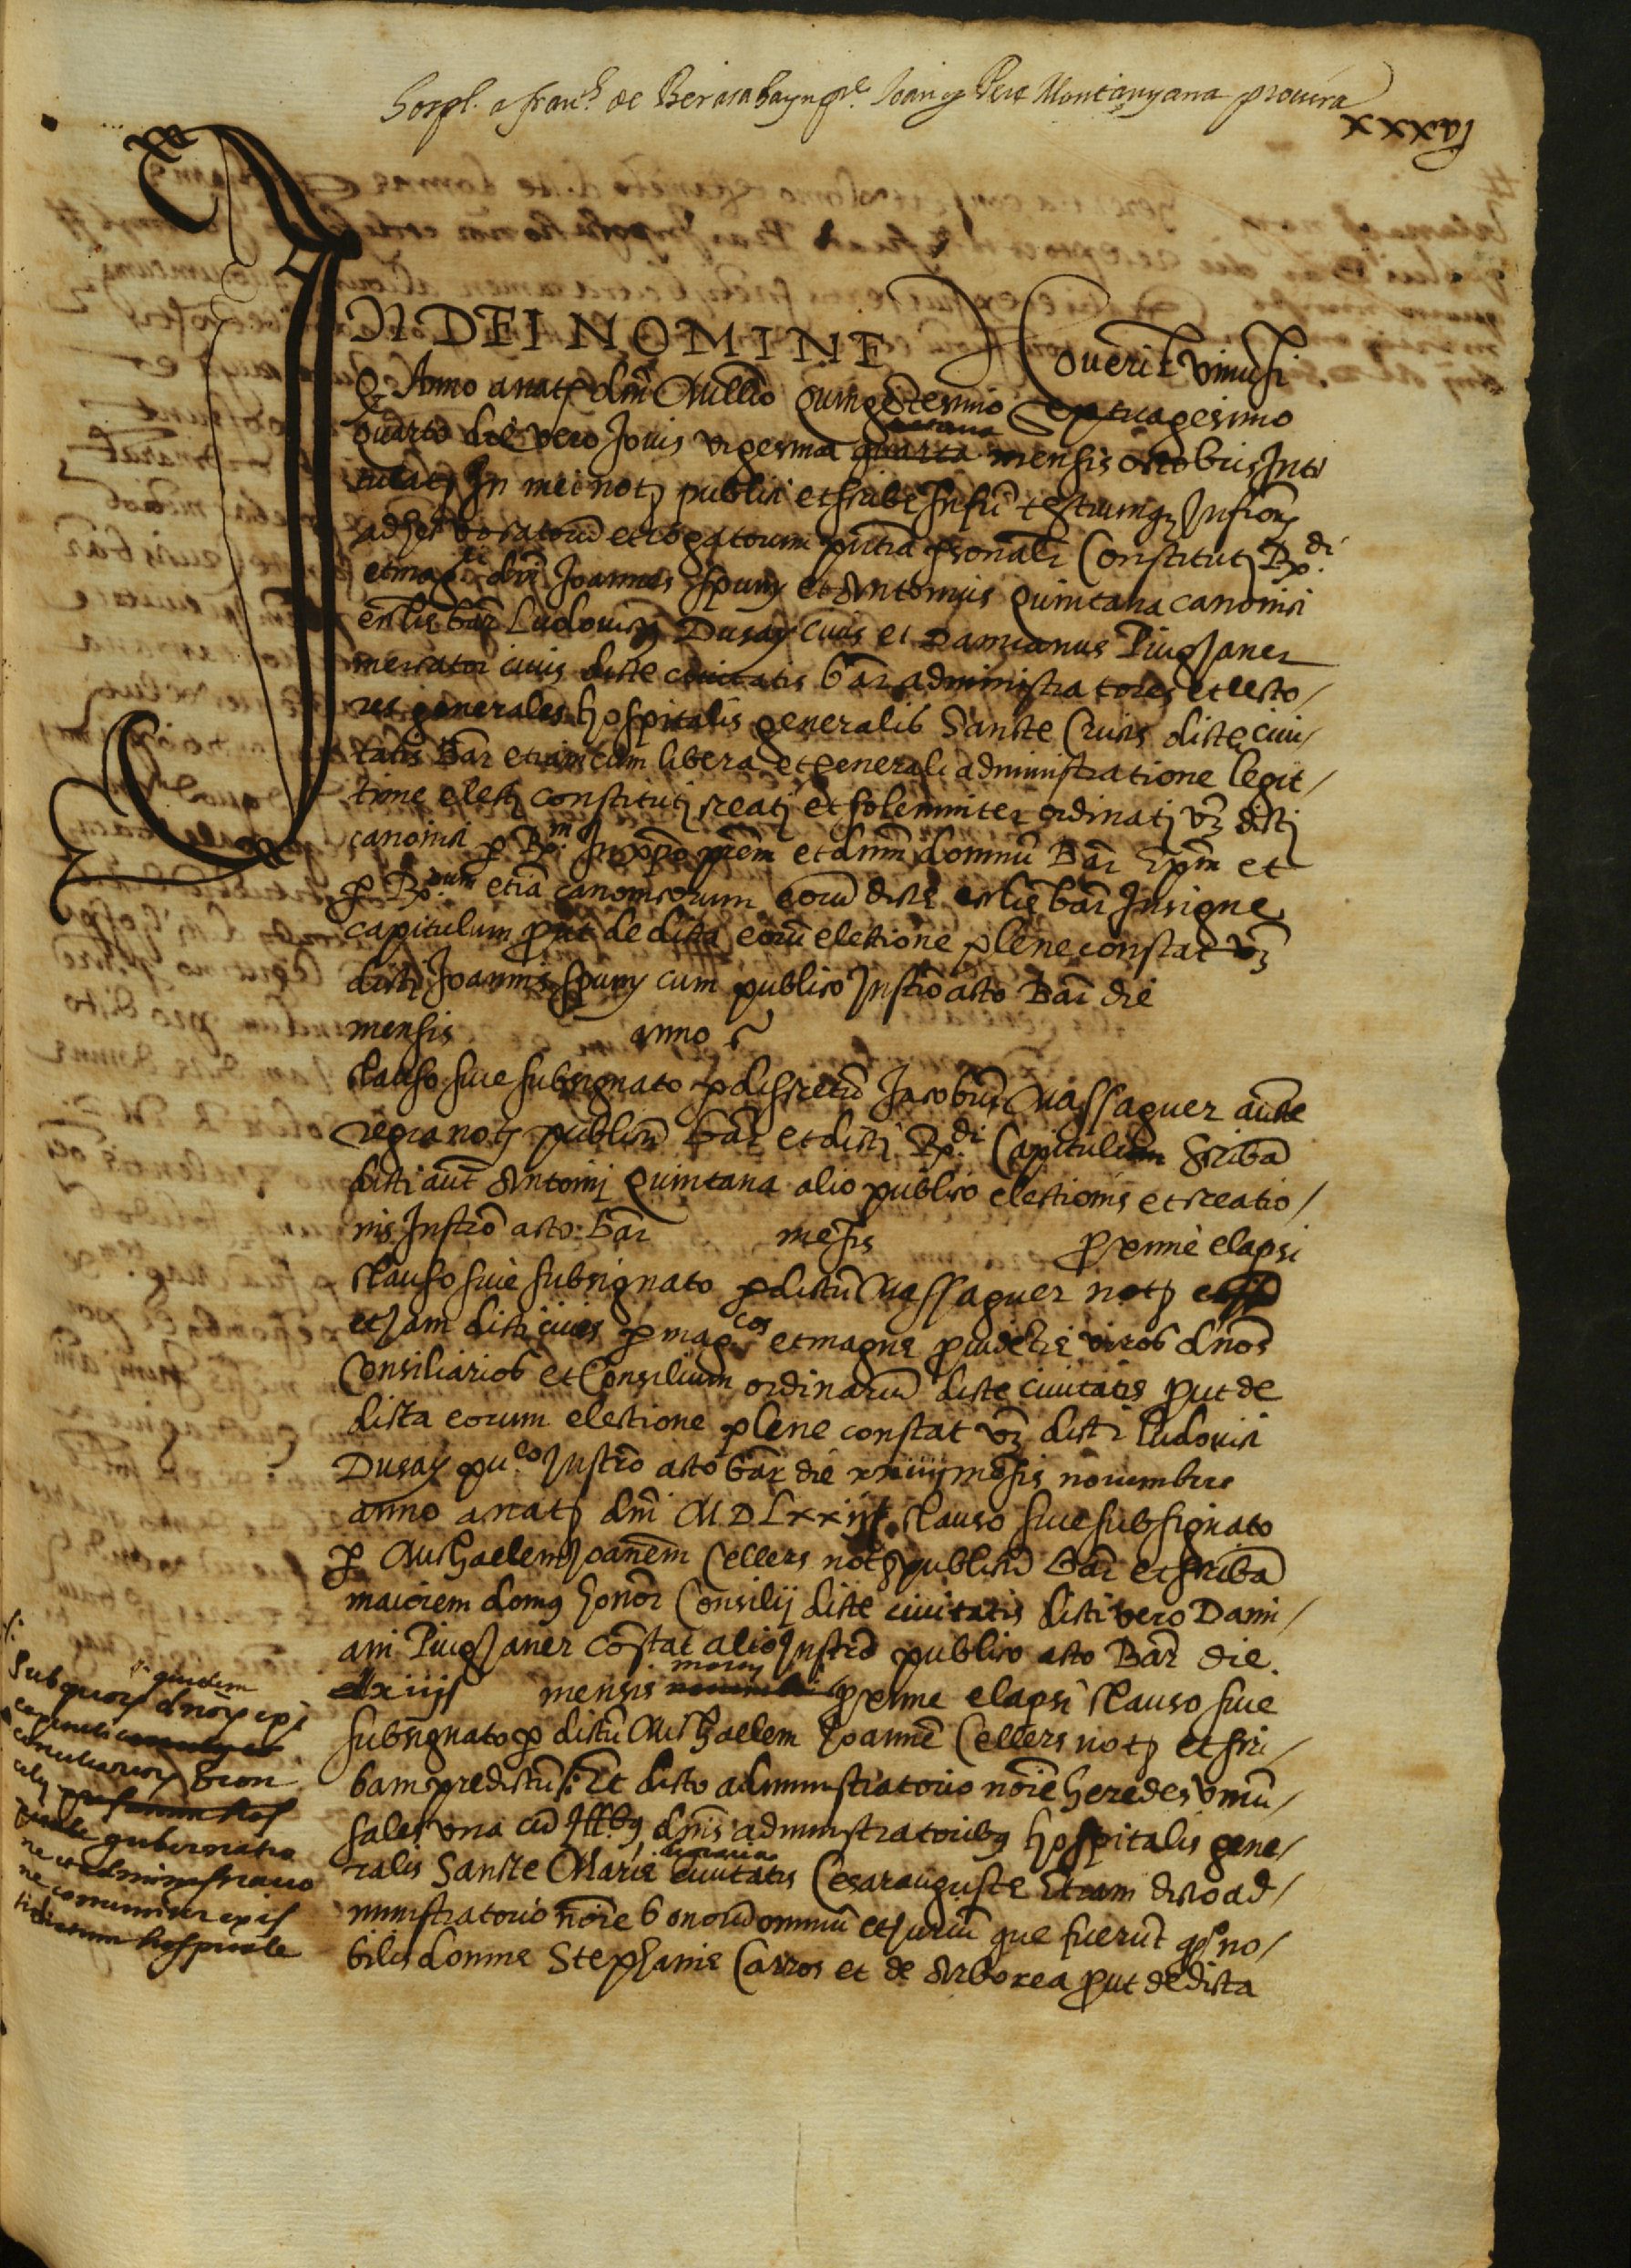 hospl. a franch de Berasa Joan Pere Montanyana
lxxxx
IN DEI NOMINE Noverit Univsi
Q Anno a natt dni Millmo Quingetesimo Septuagesimo
quarto die vero Jovis vigesima quarta mensis octobris Inti
tulatt In mei nott publici et scribe Infri testiumq Infror
ad hec vocatorū et rogatorum pntia psonalr Constituti Rdi
et magci dni Joannes Spuny et Antonius Quintana canonici
eccliē bar Ludovicus Dusay civis et Damianus PiugJaner
mercator civis dicte civitatis bar administratores et recto/
res generales hospitalis generalis Sancte Crucis dicte civi/
tatis Bar etiam cum libera et generali administratione legit/
time electj constitutj creatj et solemniter ordinatj vz dictj
canonici p Rm In xpo prem et dnm domnū Bar Epm et
p Rdum etiā canonicorum eorū dicte eccliē bar Insigne
capitulum put de dicta eorū electione plene constat vz
dictj Joannis Spuny cum publico Instro acto Bar die
mensis anno
clauso sive subsignato p discretū Jacobum Massaguer aucte
regia nott publicū Bar et dictj Rdi Capituli Scribā
dicti aut Antonij Quintana alio publico electionis et creatio/
nis Instro acto Bar mesis pxime elapsi
clauso sive subsignato p dictū Massaguer nott
et Jam dicti cives p magcos et magne pvidetie viros dnos
Consiliarios et Consilium ordinariū dicte civitatis put de
dicta eorum electione plene constat vz dicti Ludovici
Dusay puco Instro acto Bar die xxiiij mesis novembris
anno a natt dni M D L xx iij clauso sive subsignato
p Michaelem Joanem Cellers nott publicū Bar et scribā
maiorem domus honor Consilij dicte civitatis dicti vero Dami/
ani PiugJaner constat alio Instro publico acto Bar die
xiiij mensis marcij novembris pxime elapsi clauso sive
subsignato p dictū Michaelem Joannē Cellers nott et scri/
bam predictum Et dicto administratorio noie heredes univ/
sales una cū Illbus dnis administratoribus hospitalis gene/
ralis Sancte Marie civitatis Cesarauguste Etiam dicto ad/
ministratorio noie bonorū omniū et Juriū que fuerūt qo no/
bilis domne Stephanie Carros et de Arborea put de dicta
Sub quorz quidem dnorz epi
capituli
consiliariorz Bcon
cilij
gubernatio
ne et administratio
ne comuniter
dictum hospitale